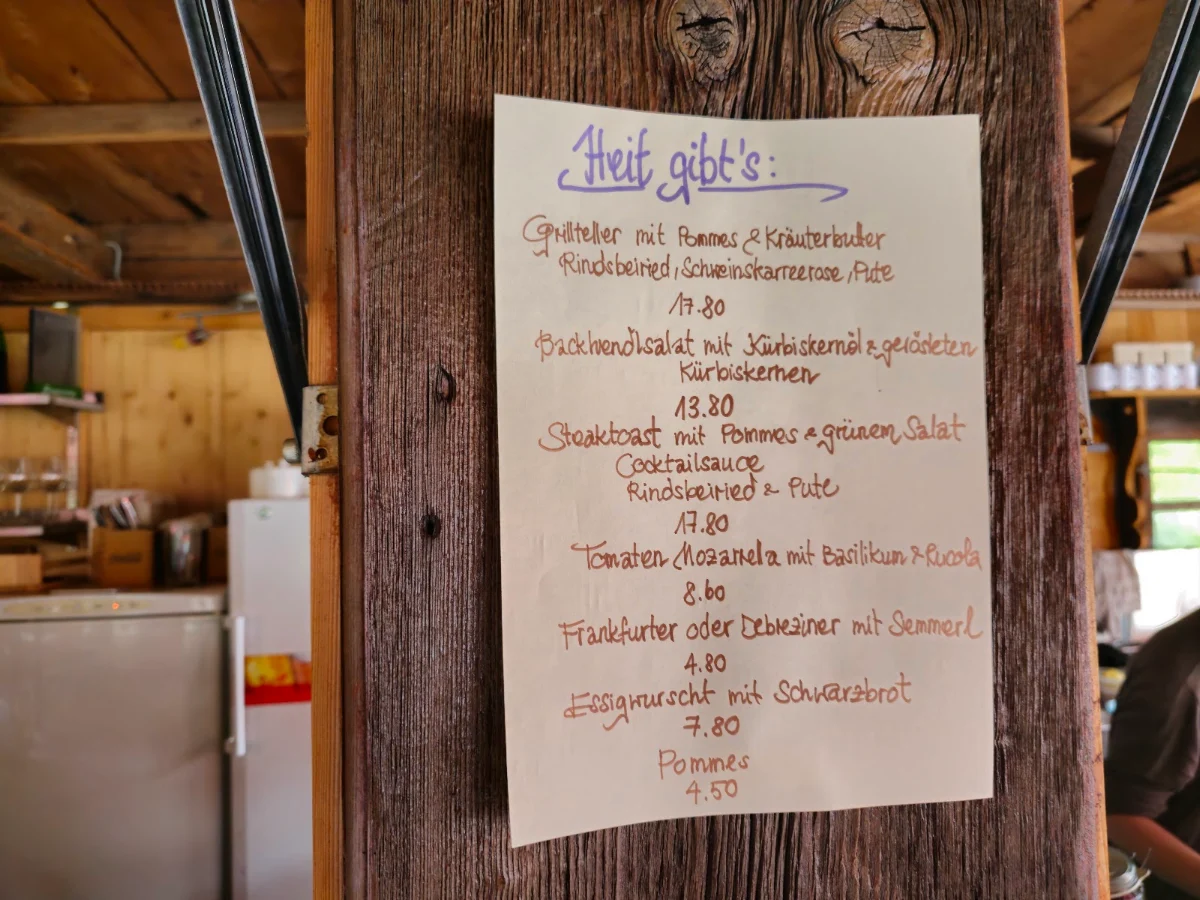 Heit gibt's:
Grillteller mit Pommes & Kräuterbutter
Rindsbeiried, Schweinskarreerose, Pute
17.80
Backhendlsalat mit Kürbiskernöl & gerösteten
Kürbiskernen
13.80
Steaktoast mit Pommes & grünem Salat
Cocktailsauce
Rindsbeiried & Pute
17.80
Tomaten Mozarella mit Basilikum & Rucola
8.60
Frankfurter oder Debreziner mit Semmerl
4.80
Essigwurscht mit Schwarzbrot
7.80
Pommes
4.50